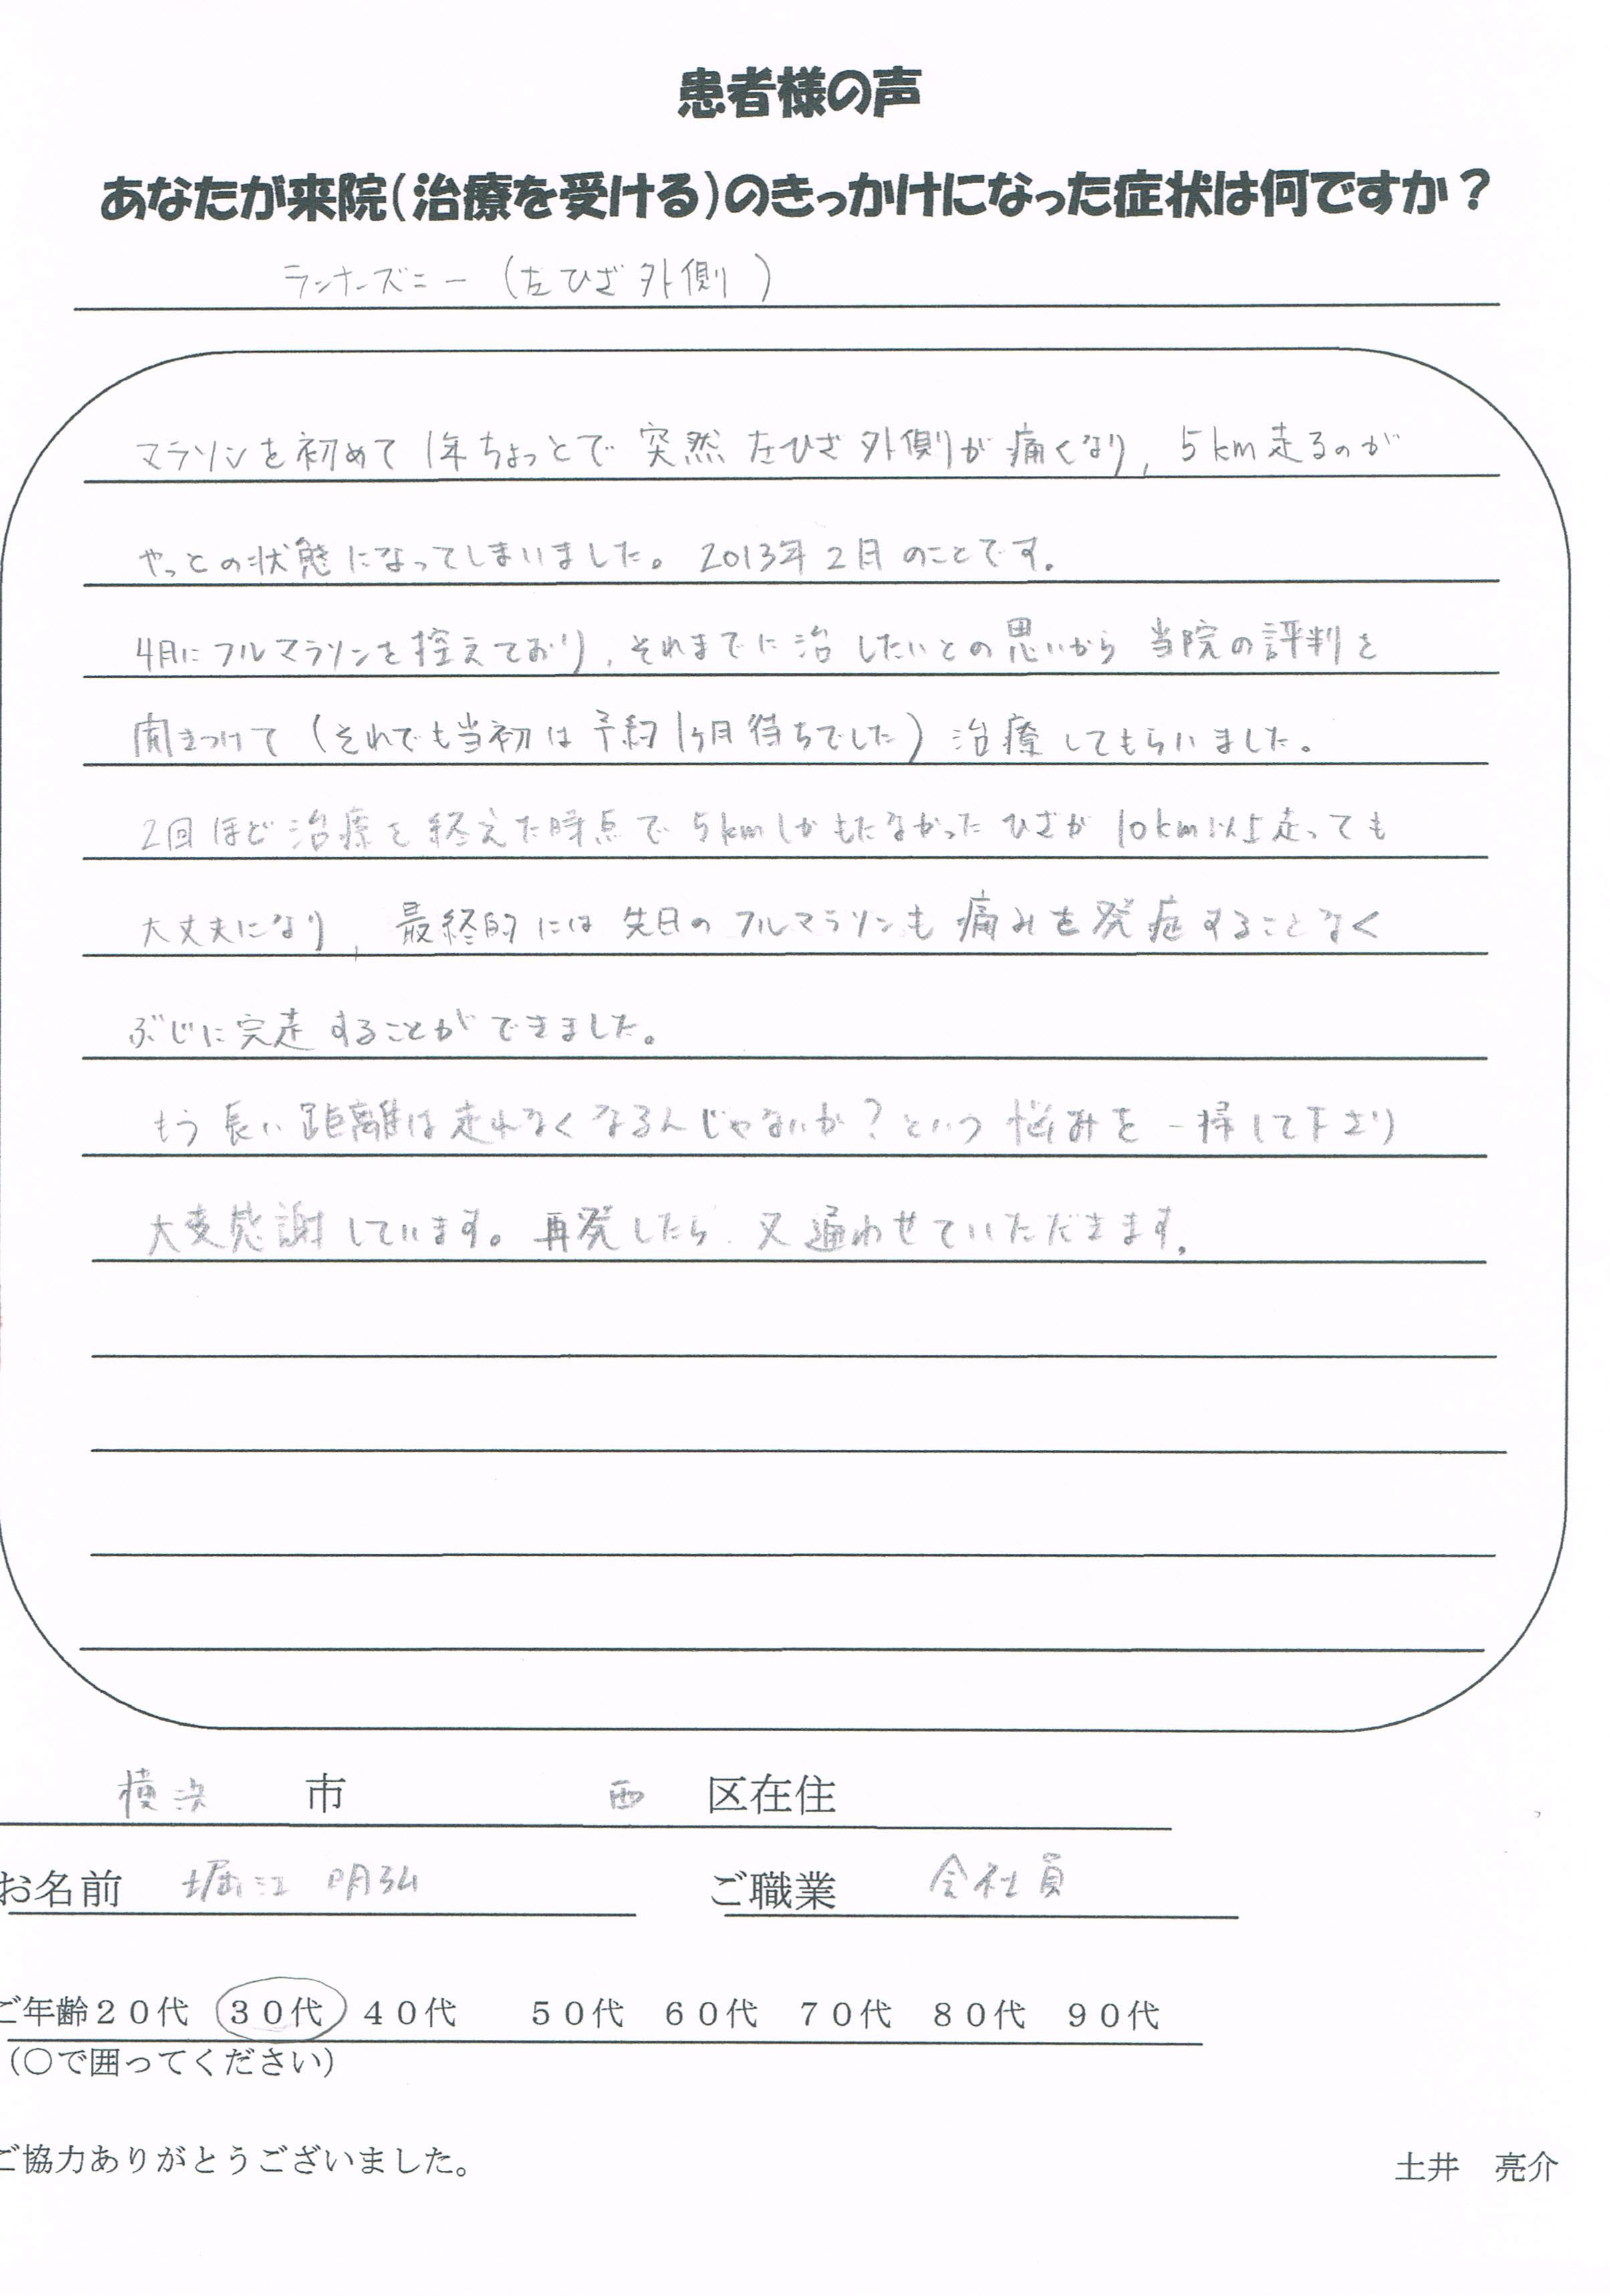 患者様の声
あなたが来院(治療を受ける)のきっかけになった症状は何ですか?
ランナーズニー (左ひざ外側)
マラソンを初めて 1年ちょっとで 突然 左ひざ 外側が 痛くなり, 5km走るのが
やっとの状態になってしまいました。 2013年2月のことです.
4月にフルマラソンを控えており, それまでに治したいとの思いから 当院の評判を
聞きつけて (それでも当初は予約1ヶ月待ちでした) 治療してもらいました。
2回ほど治療を終えた時点で 5kmしかもたなかった ひざが 10km以上走っても
大丈夫になり, 最終的には 先日の フルマラソンも 痛みを発症することなく
ぶじに完走することができました。
もう長い距離は走れなくなるんじゃないか?という悩みを一掃して下さり
大変感謝しています。再発したら 又通わせていただきます.
横浜 市 西 区在住
お名前 堀江 明弘 ご職業 会社員
ご年齢20代 30代 40代 50代 60代 70代 80代 90代
(○で囲ってください)
ご協力ありがとうございました。 土井 亮介